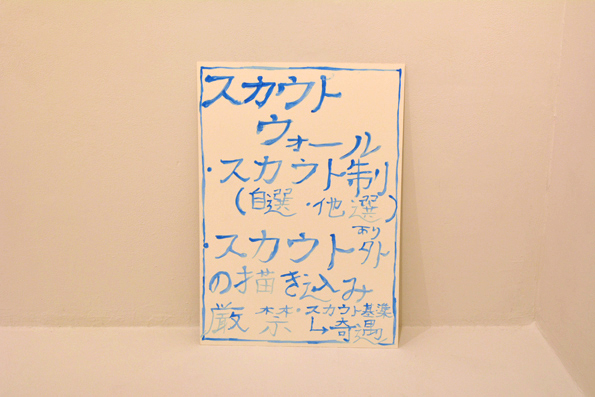 スカウト
ウォール
・スカウト制
(自選・他選)
あり
・スカウト外
の描き込み
厳禁・スカウト基準
↳奇遇